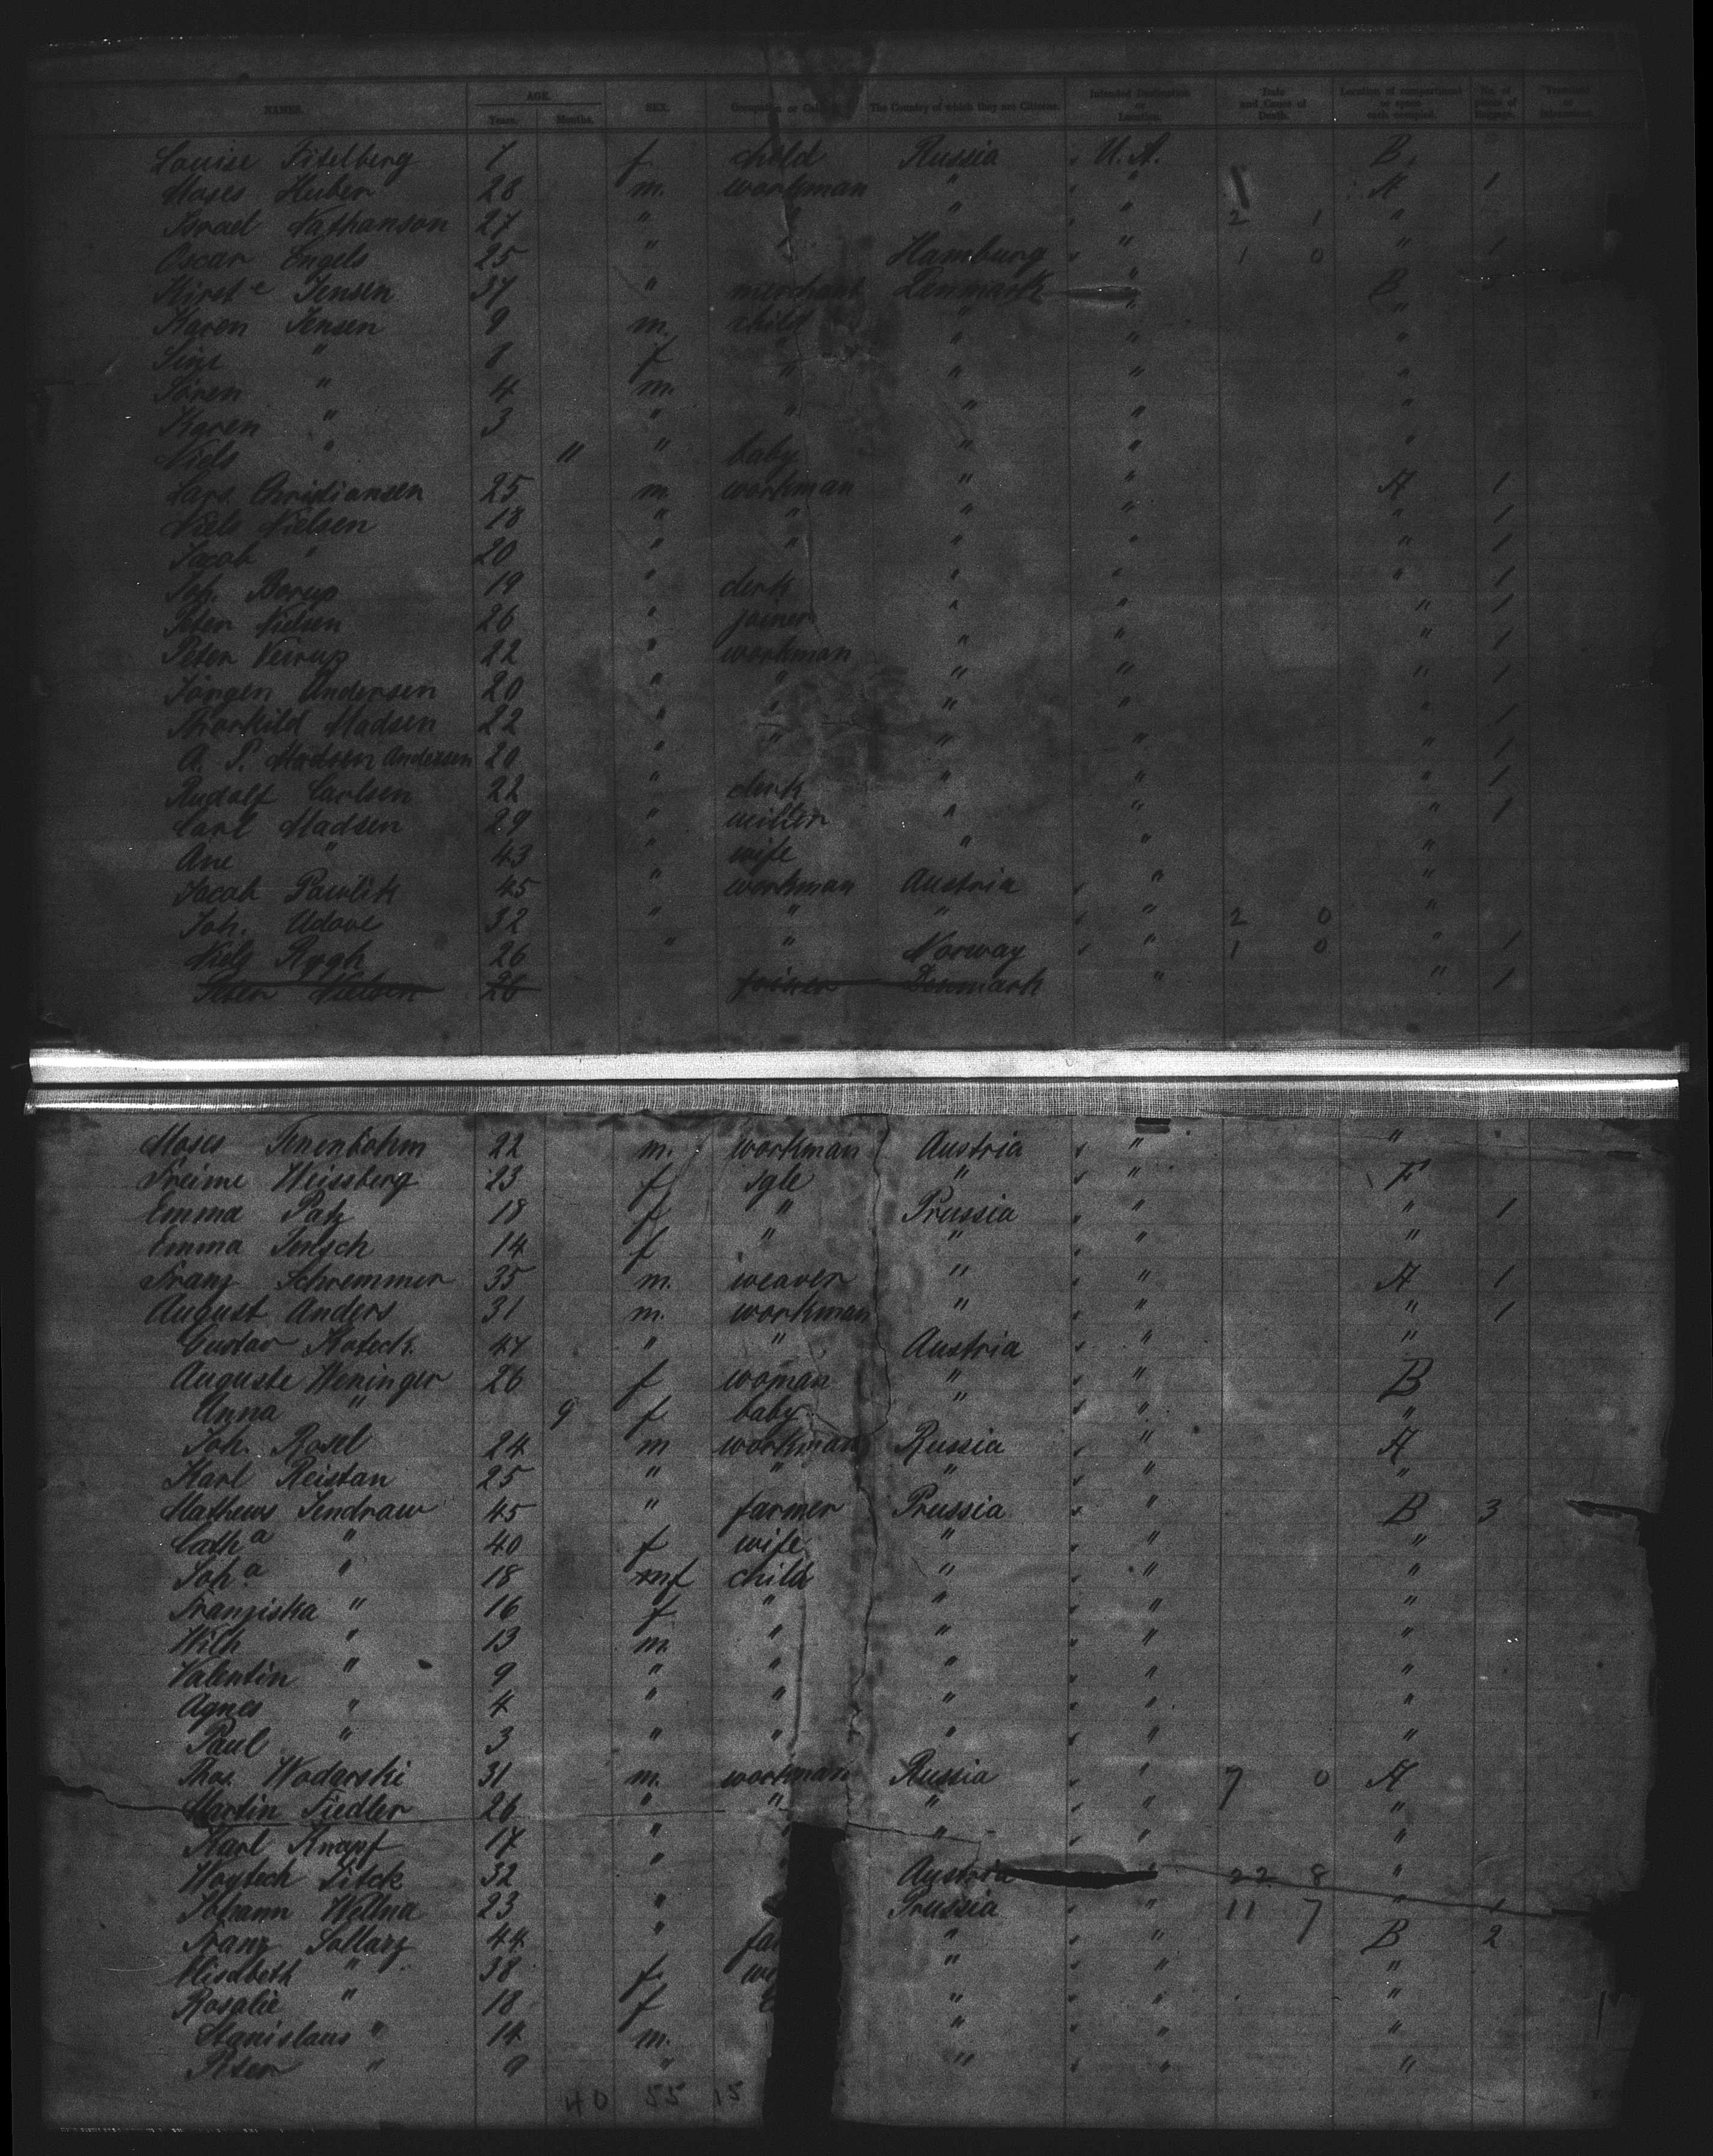 NAMES. AGE. SEX. Occupation or Calling. The Country of which they are Citizens. Intended Destination or Location. Date and Cause of Death. Location of compartment or space each occupied. No. of pieces of Baggage. Transient or
Years. Months.
Louise Titelberg 7 f child Russia U. A. B
Moses Huber 28 m. workman " " A 1
Israel Nathanson 27 " " " " 2 1 "
Oscar Engels 25 " " Hamburg " 1 0 " 1
Kirst e Jensen 37 " merchant Denmark " B
Karen Jensen 9 m. child " " "
Sine " 8 f " " " "
Sören " 4 m. " " " "
Karen " 3 " " " " "
Niels " 11 " baby " " "
Lars Christiansen 25 m. workman " " A 1
Niels Nielsen 18 " " " " " 1
Jacob " 20 " " " " " 1
Joh. Borup 19 " clerk " " " 1
Peter Nielsen 26 " joiner " " " 1
Peter Veirup 22 " workman " " " 1
Jörgen Andersen 20 " " " " " 1
Thorkild Madsen 22 " " " " 1
A. P. Madsen Andersen 20 " " " " " 1
Rudolf Carlsen 22 " clerk " " " 1
Carl Madsen 29 " " " " 1
Ane " 43 " wife " " "
Jacob Pawlik 45 " workman Austria " "
Joh. Udove 32 " " " " 2 0 "
Niels Rygh 26 " " Norway " 1 0 " 1
Peter Nielsen 26 joiner Denmark " " 1
Moses Tenenbohm 22 m. workman Austria " "
Freime Weissberg 23 f sgle " " F
Emma Patz 18 f " Prussia " " 1
Emma Jensch 14 f " " " "
Franz Schremmer 35 m. weaver " " A 1
August Anders 31 m. workman " " " 1
Gustav Koteck 47 " " Austria " "
Auguste Weninger 26 f woman " " B
Anna " 9 f baby " " "
Joh. Rosel 24 m workman Russia " A
Karl Reistan 25 " " " " "
Mathews Jendraw 45 " farmer Prussia " B 3
Cath a " 40 f wife " " "
Joh a " 18 m f child " " "
Franziska " 16 f " " " "
Wilh " 13 m. " " " "
Valentin " 9 " " " " "
Agnes " 4 " " " " "
Paul " 3 " " " " "
Thos. Wodarski 31 m. workman Russia " 7 0 A
Martin Fiedler 26 " " " " "
Karl Knapf 17 " " " " "
Woytech Sitek 32 " Austria " 22 8 "
Johann Wellna 23 " Prussia " 11 7 " 1
Franz Sollarz 44 " fa " " B 2
Elisabeth " 38 f. w " " "
Rosalie " 18 f " " "
Stanislaus " 14 m. " " "
Peter " 9 " " " "
40 55 15